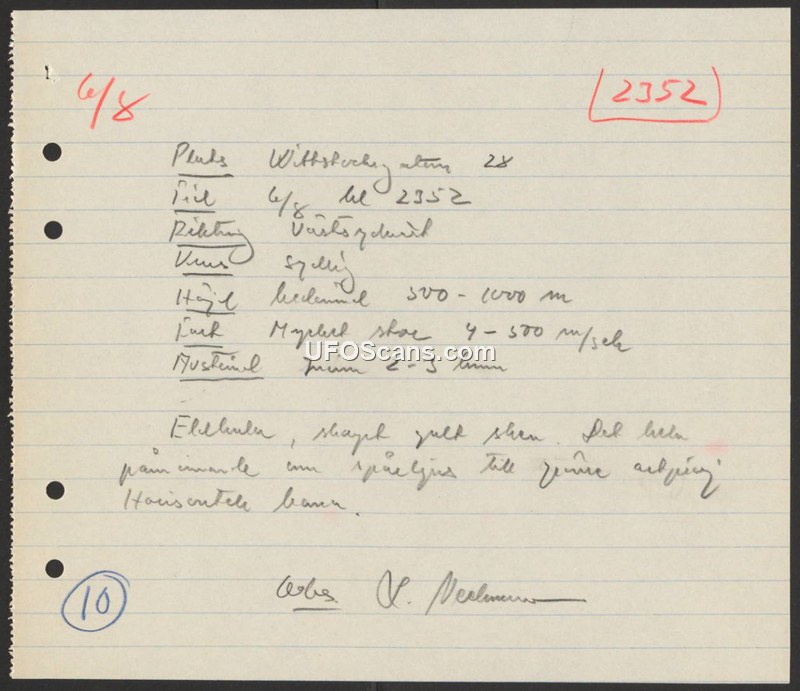 6/8
2352
Plats Wittstocksgatan 28
Tid 6/8 kl 2352
Riktning Västsydväst
Kurs sydlig
Höjd bedömd 500-1000 m
Fart Mycket stor 4-500 m/sek
Avstånd 2-3
UFOScans.com
Eldkula, skarpt gult sken. Det hela
påminde om spårljus till
Horisontell bana.
10
Obs